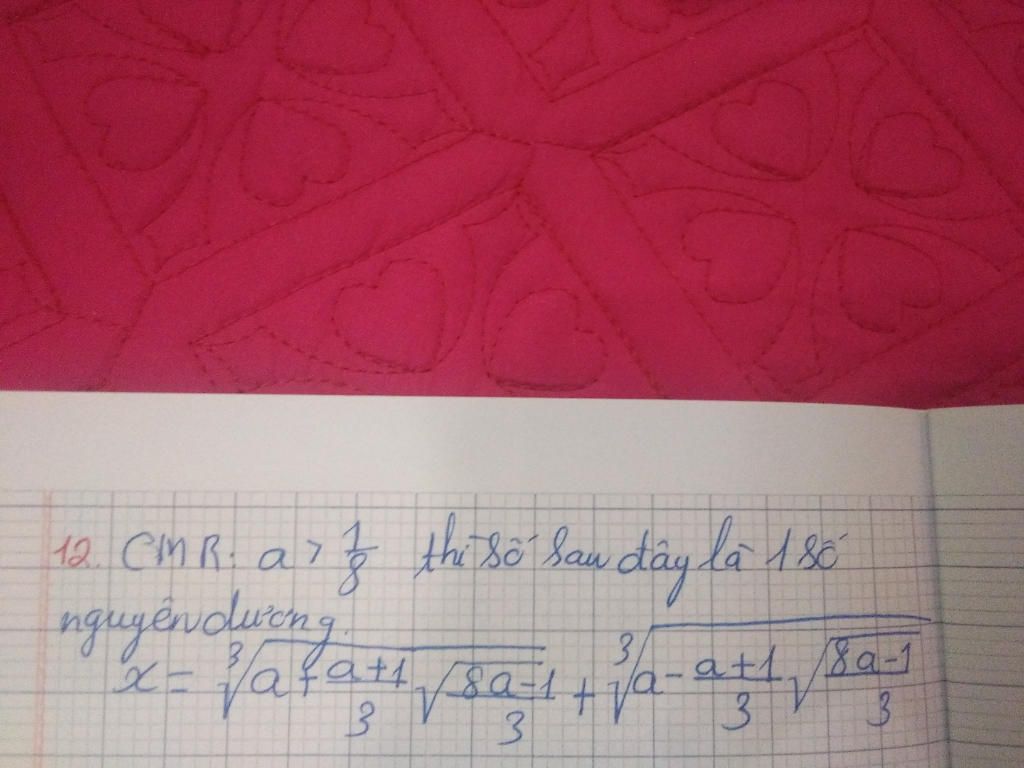 12. CMR: a > 1/8 thì số sau đây là 1 số
nguyên dương.
x = ∛(a + (a+1)/3 √((8a-1)/3)) + ∛(a - (a+1)/3 √((8a-1)/3))